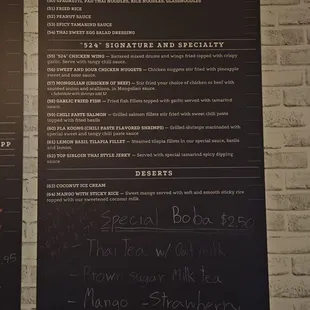 (50) SPAGHETTI, PAD THAI NOODLES, RICE NOODLES, GLASSNOODLES
(51) FRIED RICE
(52) PEANUT SAUCE
(53) SPICY TAMARIND SAUCE
(54) THAI SWEET EGG SALAD DRESSING
"524" SIGNATURE AND SPECIALTY
(55) "524" CHICKEN WINGS – Battered mixed drums and wings fried topped with crispy
garlic. Serve with tangy chili sauce.
(56) SWEET AND SOUR CHICKEN NUGGETS – Chicken nuggets stir fried with pineapple
sweet and sour sauce.
(57) MONGOLIAN (CHICKEN OF BEEF) – Stir fried your choice of chicken or beef with
sauteed onions and scallions, in Mongolian sauce.
(58) GARLIC FRIED FISH – Fried fish fillets topped with garlic served with tamarind
sauce.
(59) CHILI PASTE SALMON – Grilled salmon fillets stir fried with sweet chili paste
topped with fried basils
(60) PLA KOONG (CHILI PASTE FLAVORED SHRIMPS) – Grilled shrimps marinated with
special sweet and tangy chili paste sauce.
(61) LEMON BASIL TILAPIA FILLET – Steamed tilapia fillets in our special sauce, basils
and lemon.
(62) TOP SIRLOIN THAI STYLE JERKY – Served with special tamarind spicy dipping
sauce
DESERTS
(63) COCONUT ICE CREAM
(64) MANGO WITH STICKY RICE – Sweet mango served with soft and smooth sticky rice
topped with our sweetened coconut milk.
Special Boba $2.50
- Thai Tea w/ Oat milk
- Brown sugar Milk tea
- Mango - Strawberry
PP
.95